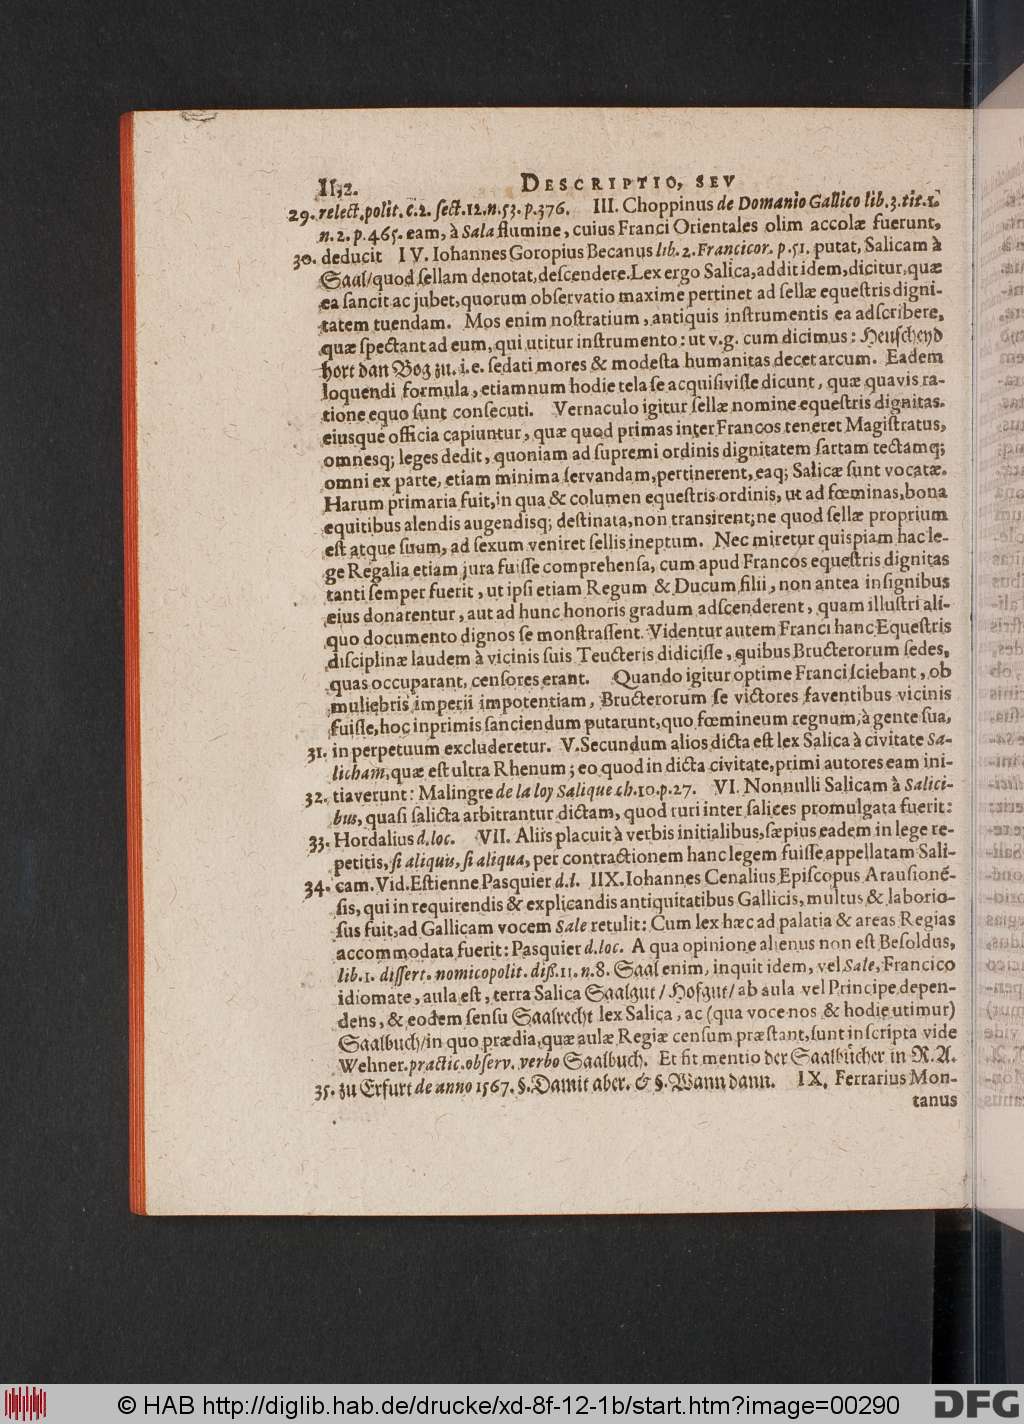 II52. DESCRIPTIO, SEV
29. relect. polit. c. 2. sect. 12. n. 53. p. 376. III. Choppinus de Domanio Gallico lib. 3. tit. 1.
n. 2. p. 465. eam, à Sala flumine, cuius Franci Orientales olim accolæ fuerunt,
30. deducit IV. Iohannes Goropius Becanus lib. 2. Francicor. p. 51. putat, Salicam à
Saal/ quod ſellam denotat, deſcendere. Lex ergo Salica, addit idem, dicitur, quæ
ea ſancit ac jubet, quorum obſervatio maxime pertinet ad ſellæ equeſtris digni-
tatem tuendam. Mos enim noſtratium, antiquis inſtrumentis ea adſcribere,
quæ ſpectant ad eum, qui utitur inſtrumento: ut v. g. cum dicimus: Heuſcheyd
hort dan Bog zu. i. e. ſedati mores & modeſta humanitas decet arcum. Eadem
loquendi formula, etiamnum hodie tela ſe acquiſiviſſe dicunt, quæ quavis ra-
tione equo ſunt conſecuti. Vernaculo igitur ſellæ nomine equeſtris dignitas.
eiusque officia capiuntur, quæ quod primas inter Francos teneret Magiſtratus,
omnesq; leges dedit, quoniam ad ſupremi ordinis dignitatem ſartam tectamq;
omni ex parte, etiam minima ſervandam, pertinerent, eaq; Salicæ ſunt vocatæ.
Harum primaria fuit, in qua & columen equeſtris ordinis, ut ad fœminas, bona
equitibus alendis augendisq; deſtinata, non tranſirent; ne quod ſellæ proprium
eſt atque ſuum, ad ſexum veniret ſellis ineptum. Nec miretur quispiam hac le-
ge Regalia etiam jura fuiſſe comprehenſa, cum apud Francos equeſtris dignitas
tanti ſemper fuerit, ut ipſi etiam Regum & Ducum filii, non antea inſignibus
eius donarentur, aut ad hunc honoris gradum adſcenderent, quam illuſtri ali-
quo documento dignos ſe monſtraſſent. Videntur autem Franci hanc Equeſtris
diſciplinæ laudem à vicinis ſuis Teucteris didiciſſe, quibus Bructerorum ſedes,
quas occuparant, cenſores erant. Quando igitur optime Franci ſciebant, ob
muliebris imperii impotentiam, Bructerorum ſe victores faventibus vicinis
fuiſſe, hoc inprimis ſanciendum putarunt, quo fœmineum regnum, à gente ſua,
31. in perpetuum excluderetur. V. Secundum alios dicta eſt lex Salica à civitate Sa-
licham, quæ eſt ultra Rhenum; eo quod in dicta civitate, primi autores eam ini-
32. tiaverunt: Malingre de la loy Salique ch. 10. p. 27. VI. Nonnulli Salicam à Salici-
bus, quaſi ſalicta arbitrantur dictam, quod ruri inter ſalices promulgata fuerit:
33. Hordalius d. loc. VII. Aliis placuit à verbis initialibus, ſæpius eadem in lege re-
petitis, ſi aliquis, ſi aliqua, per contractionem hanc legem fuiſſe appellatam Sali-
34. cam. Vid. Eſtienne Pasquier d. l. IIX. Iohannes Cenalius Epiſcopus Arauſionẽ-
ſis, qui in requirendis & explicandis antiquitatibus Gallicis, multus & laborio-
ſus fuit, ad Gallicam vocem Sale retulit: Cum lex hæc ad palatia & areas Regias
accommodata fuerit: Pasquier d. loc. A qua opinione alienus non eſt Beſoldus,
lib. 1. diſſert. nomicopolit. diß. 11. n. 8. Saal enim, inquit idem, vel Sale, Francico
idiomate, aula eſt, terra Salica Saalgut/ Hofgut/ ab aula vel Principe depen-
dens, & eodem ſenſu Saalrecht lex Salica, ac (qua voce nos & hodie utimur)
Saalbuch/ in quo prædia, quæ aulæ Regiæ cenſum præſtant, ſunt inſcripta vide
Wehner. practic. obſerv. verbo Saalbuch. Et fit mentio der Saalbücher in R. A.
35. zu Erfurt de anno 1567. §. Damit aber. & §. Wann dann. IX. Ferrarius Mon-
tanus
© HAB http://diglib.hab.de/drucke/xd-8f-12-1b/start.htm?image=00290
DFG